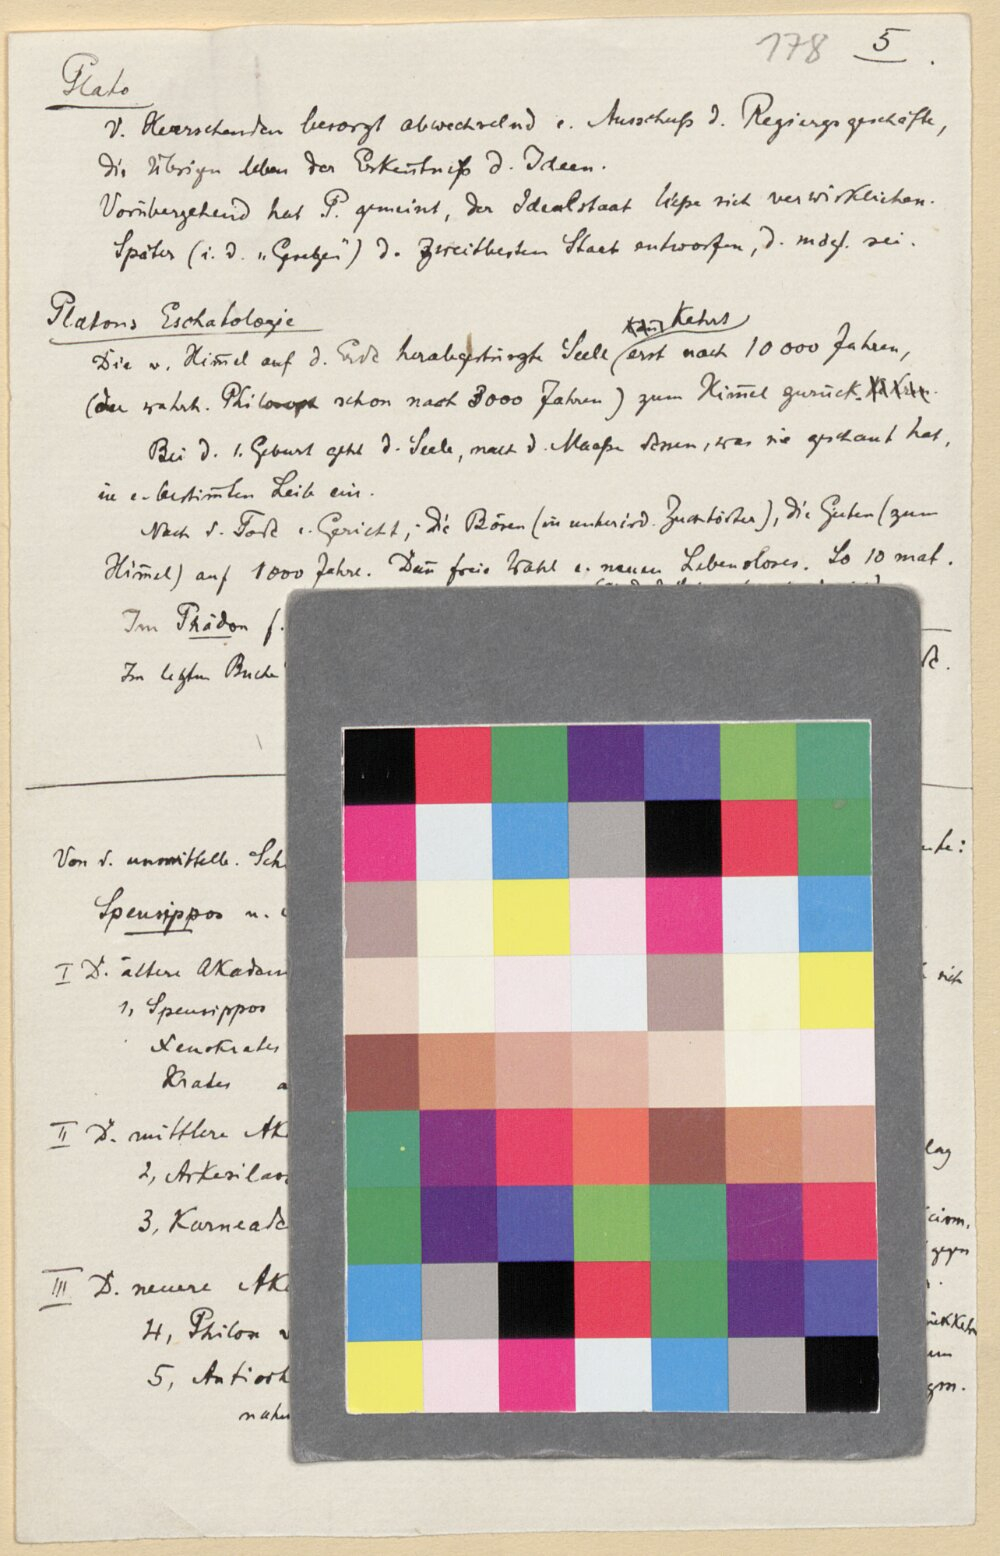 178 5.
Plato
V. Herrschenden besorgt abwechselnd e. Ausschuß d. Regiergsgeschäfte,
die Übrigen leben der Erkentniß d. Ideen.
Vorübergehend hat P. gemeint, der Idealstaat ließe sich verwirklichen.
Später (i. d. „Gesetzen") d. zweitbesten Staat entworfen, d. mögl. sei.
Platons Eschatologie
kehrt
Die v. Himel auf d. Erde herabgestürzte Seele erst nach 10 000 Jahren,
(der wahrh. Philosoph schon nach 3000 Jahren) zum Himel zurück.
Bei d. 1. Geburt geht d. Seele, nach d. Maaße dessen, was sie geschaut hat,
in e. bestimten Leib ein.
Nach d. Tode e. Gericht; die Bösen (in unterird. Zuchtörter), die Guten (zum
Himel) auf 1000 Jahre. Dan freie Wahl e. neuen Lebensloses. So 10 mal.
Im Phädon
Im letzten Buche
Von d. unmittelb. Sch
Speusippos u.
I D. ältere Akadem
sich
1, Speusippos
Xenokrates
Krates
II D. mittlere Ak
2, Arkesilaos
3, Karneade
gegen
III D. neuere Ak
4, Philon v
5, Antioch